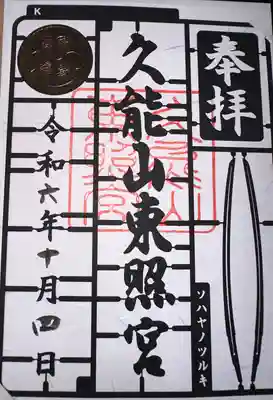 K
奉拝
久能山東照宮
令和六年十月四日
ソハヤノツルキ